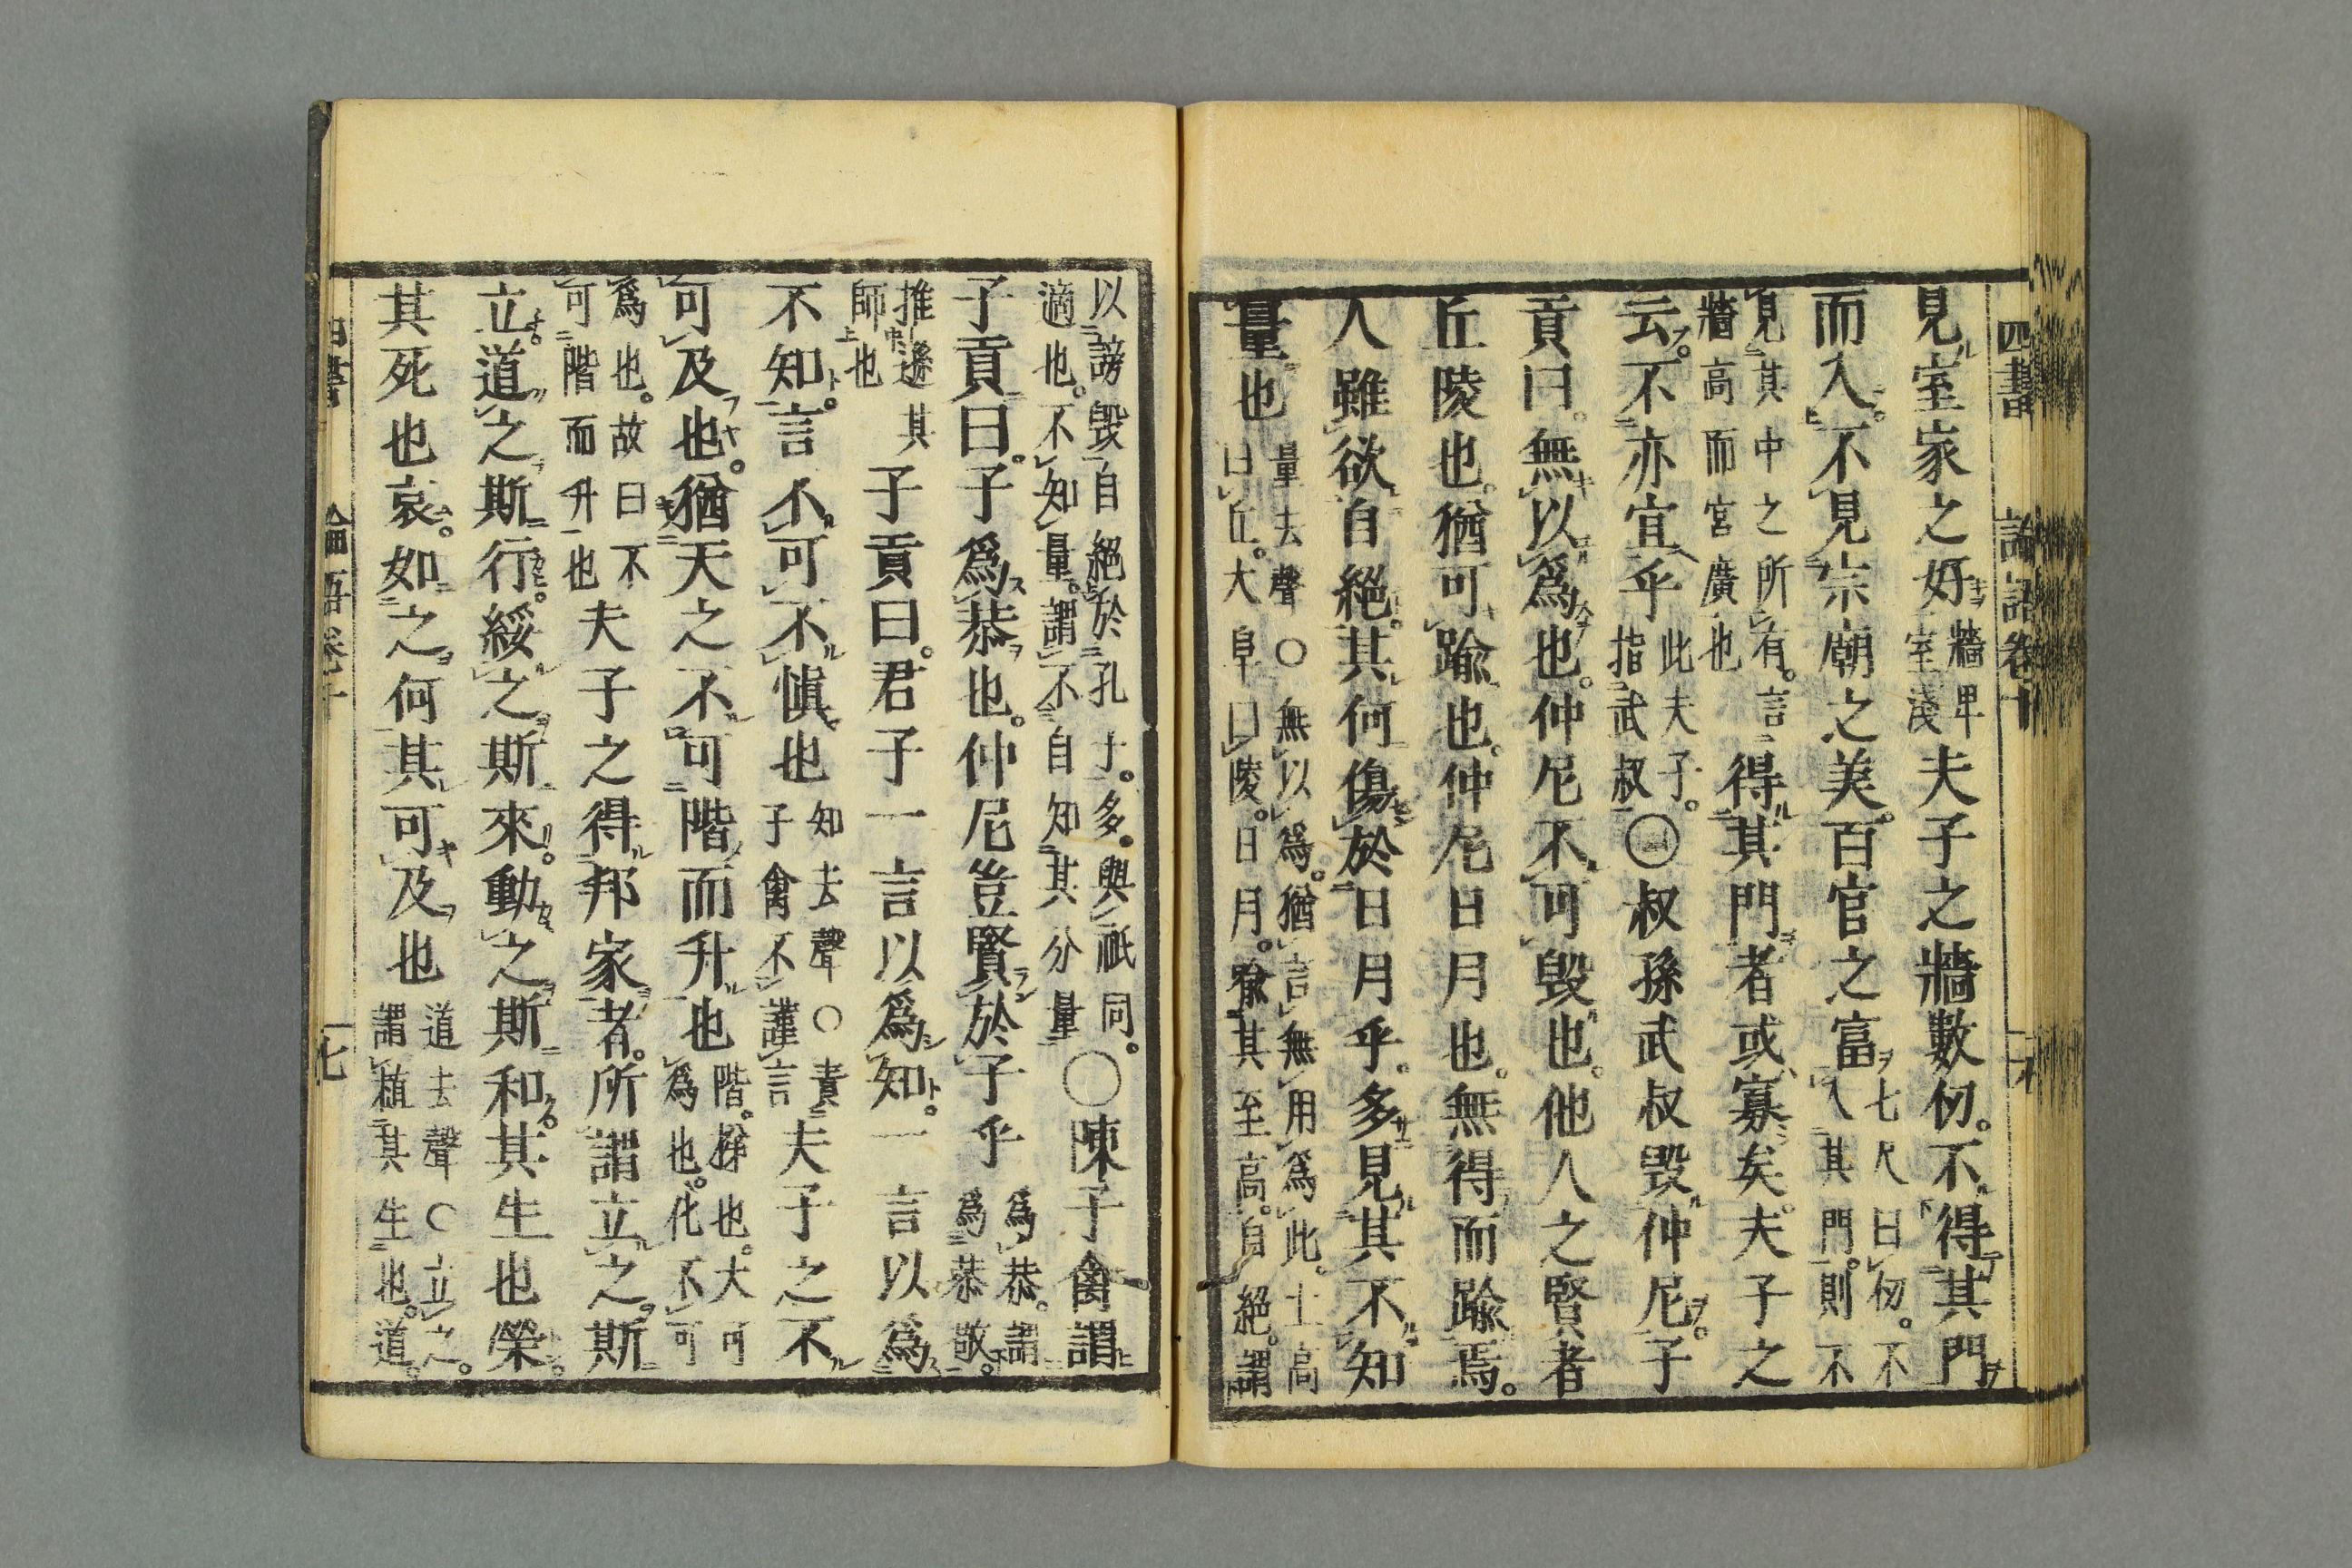 四書 論語卷十
見室家之好 牆卑室淺 夫子之牆數仞。不得其門
而入。不見宗廟之美。百官之富 七尺曰仞。不入其門。則不
見其中之所有。言牆高而宮廣也 得其門者或寡矣。夫子之
云。不亦宜乎 此夫子。指武叔 ○叔孫武叔毀仲尼。子
貢曰。無以爲也。仲尼不可毀也。他人之賢者
丘陵也。猶可踰也。仲尼日月也。無得而踰焉。
人雖欲自絕。其何傷於日月乎。多見其不知
量也 量去聲○無以爲。猶言無用爲此。土高曰丘。大阜曰陵。日月。喩其至高。自絕。謂
以謗毀自絕於孔子。多。與祇同。適也。不知量。謂不自知其分量 ○陳子禽謂
子貢曰。子爲恭也。仲尼豈賢於子乎 爲恭。謂爲恭敬。
推遜其師也 子貢曰。君子一言以爲知。一言以爲
不知。言不可不愼也 知去聲○責子禽不謹言 夫子之不
可及也。猶天之不可階而升也 階。梯也。大可爲也。化不可
爲也。故曰不可階而升也 夫子之得邦家者。所謂立之。斯
立。道之。斯行。綏之。斯來。動之。斯和。其生也榮。
其死也哀。如之何其可及也 道去聲○立之。謂植其生也。道。
四書 論語卷十 十七